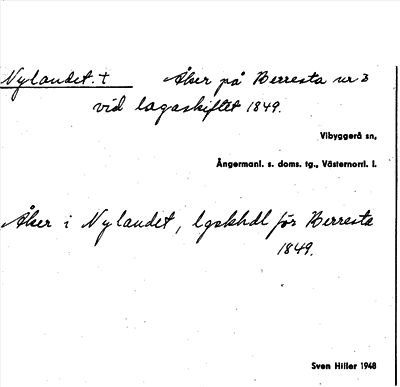 Nylandet. + Åker på Berresta nr 3
vid lagaskiftet 1849.
Vibyggerå sn,
Ångermanl. s. doms. tg., Västernorrl. l.
Åker i Nylandet, lgskhdl för Berresta
1849.
Sven Hiller 1948